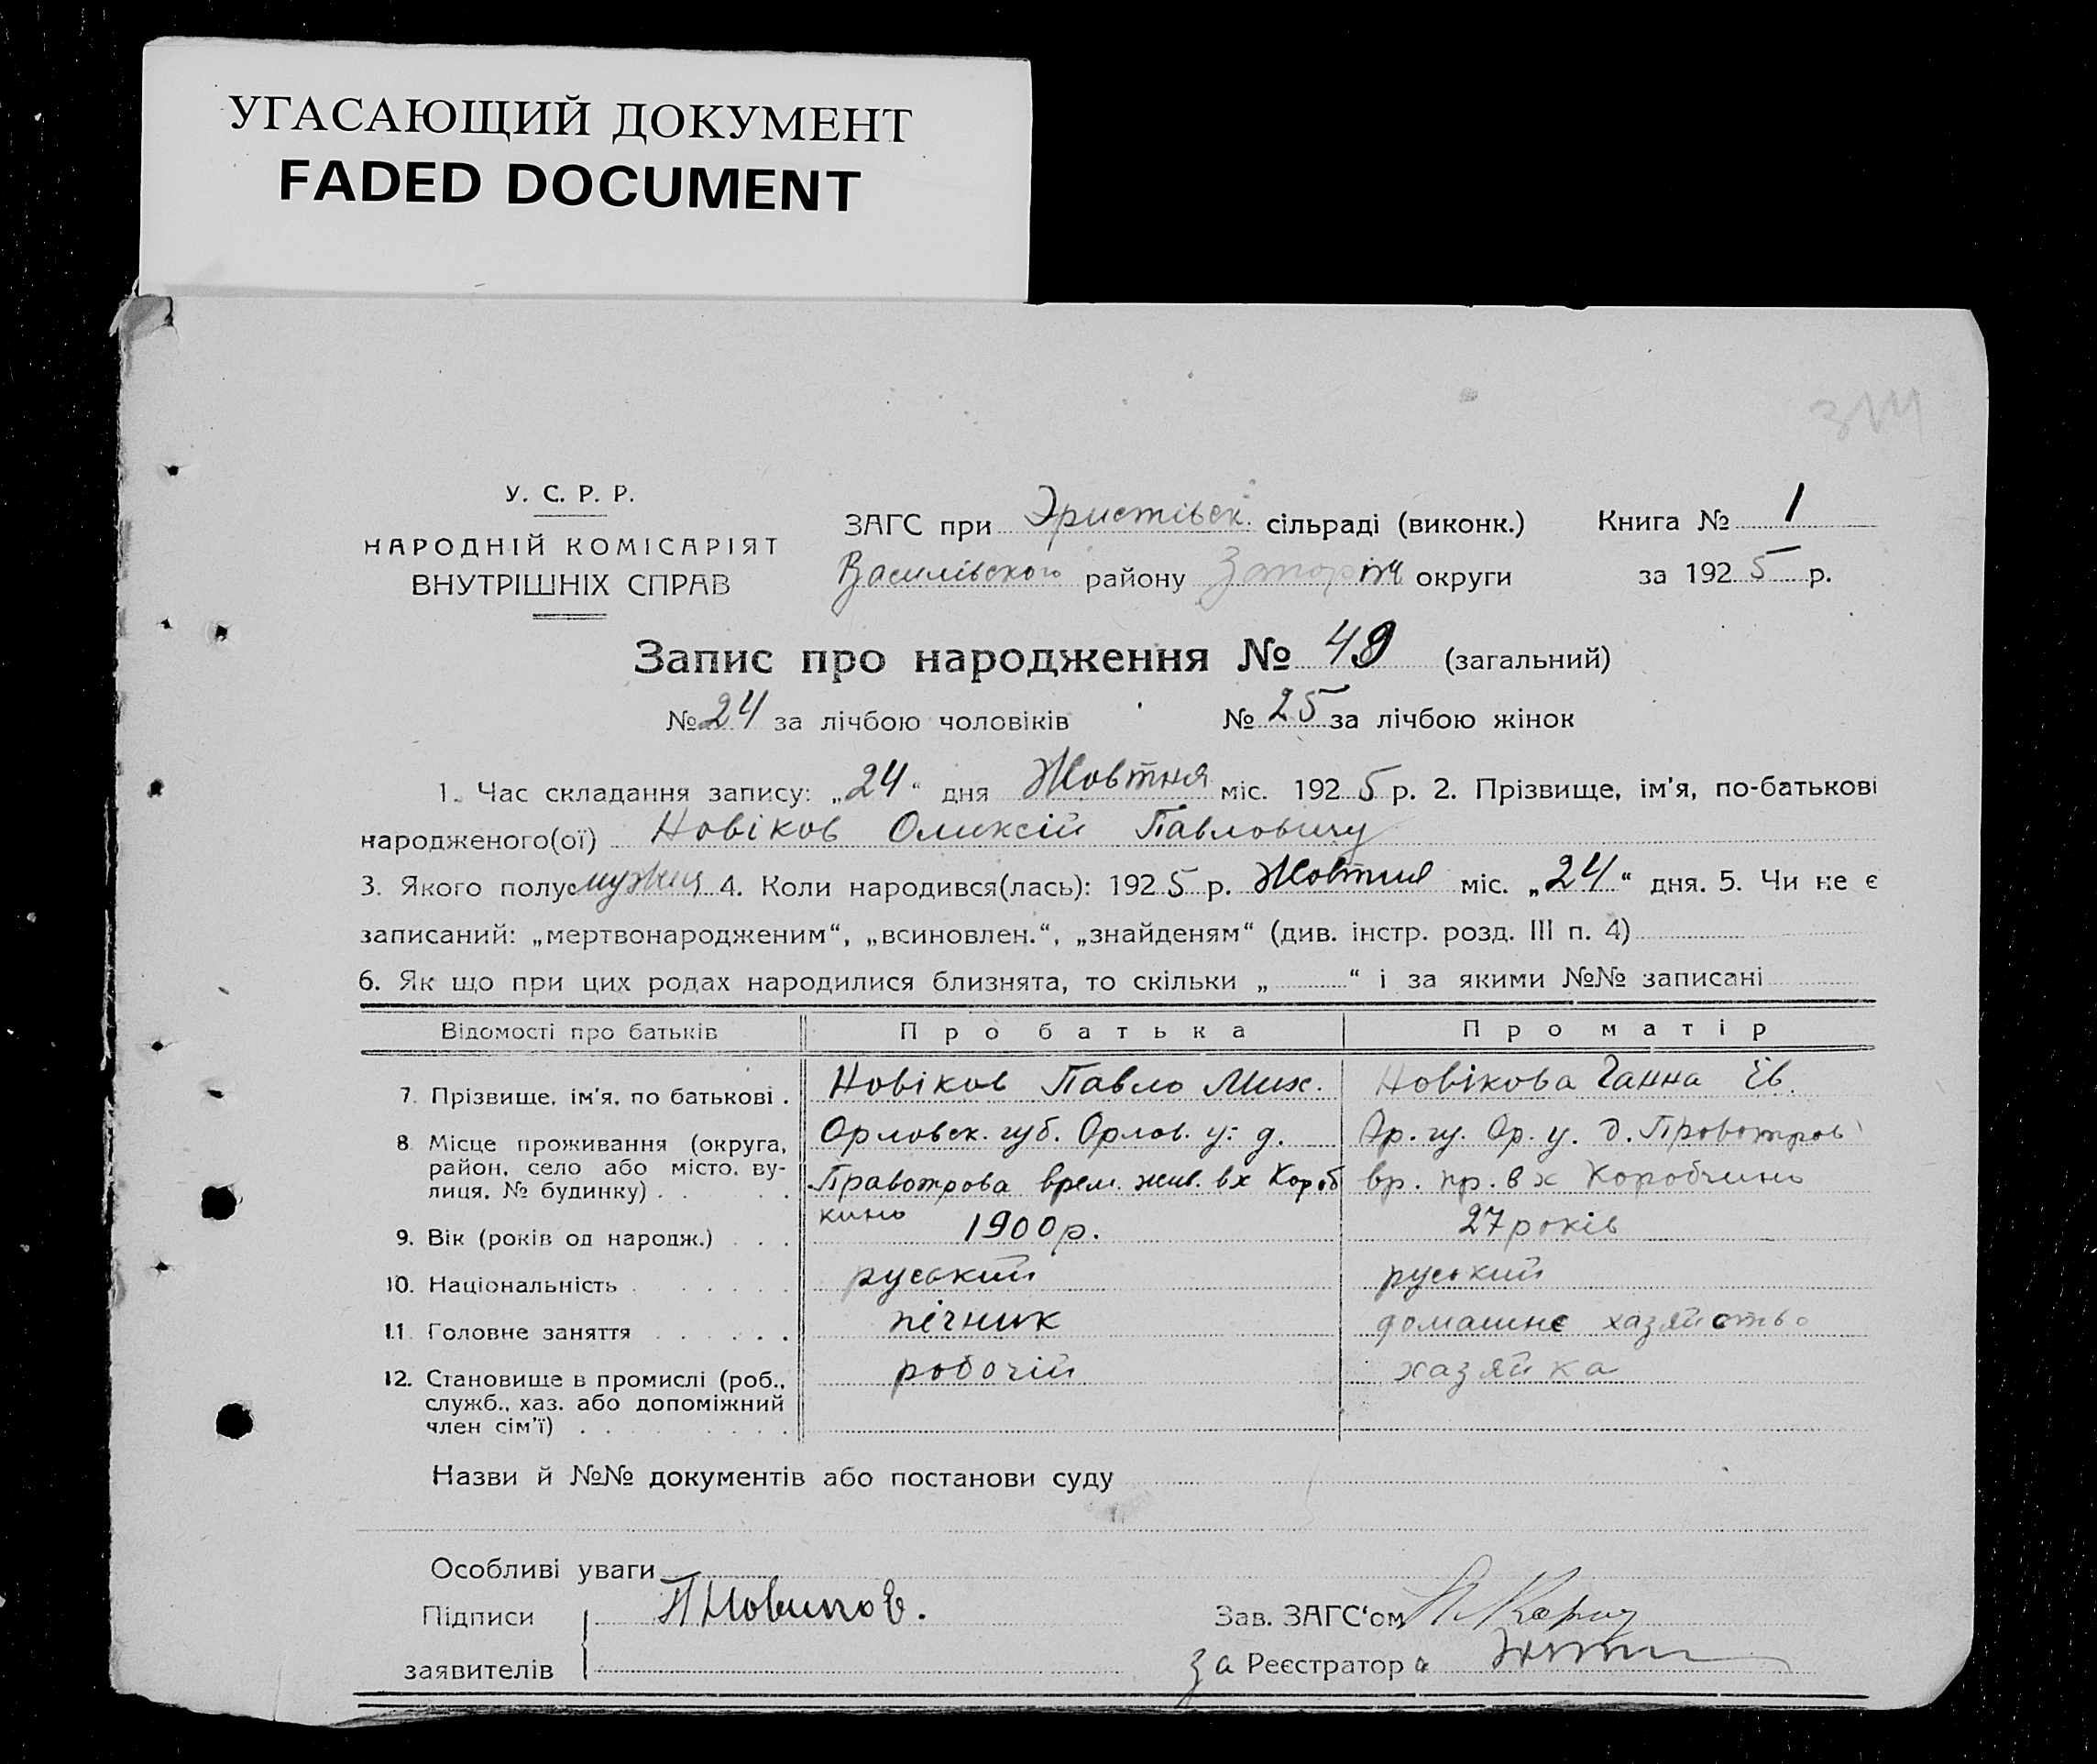 УГАСАЮЩИЙ ДОКУМЕНТ
FADED DOCUMENT
У. С. Р. Р.
НАРОДНІЙ КОМІСАРІЯТ
ВНУТРІШНІХ СПРАВ
ЗАГС при Эристівск. сільраді (виконк.) Книга № 1
Василівского району округи за 1925 р.
Запис про народження № 49 (загальний)
№ 24 за лічбою чоловіків № 25 за лічбою жінок
1. Час складання запису: „24" дня Жовтня міс. 1925 р. 2. Прізвище, ім'я, по-батькові
народженого(ої) Новіков Олексій Павловичу
3. Якого полу 4. Коли народився(лась): 1925 р. Жовтня міс. „24" дня. 5. Чи не є
записаний: „мертвонародженим", „всиновлен.", „знайденям" (див. інстр. розд. III п. 4)
6. Як що при цих родах народилися близнята, то скільки „ " і за якими №№ записані
Відомості про батьків Про батька Про матір
7. Прізвище, ім'я, по батькові . Новіков Павло Мих. Новікова Ганна Єв.
8 Місце проживання (округа, Орловск. губ. Орлов. у. д. Ор. гу. Ор. у. д. Правотров
район, село або місто, ву- Правотрова врем. жив. в х Короб вр. пр. в х Коробчино
лиця, № будинку) . . . . кино
9. Вік (років од народж.) . . . 1900 р. 27 років
10. Національність . . . . . . руський руський
11. Головне заняття . . . . . . пічник домашнє хазяйство
12. Становище в промислі (роб., робочій хазяйка
служб., хаз. або допоміжний
член сім'ї) . . . . . . .
Назви й №№ документів або постанови суду
Особливі уваги
Підписи П Новиков. Зав. ЗАГС'ом
заявителів за Реєстратора